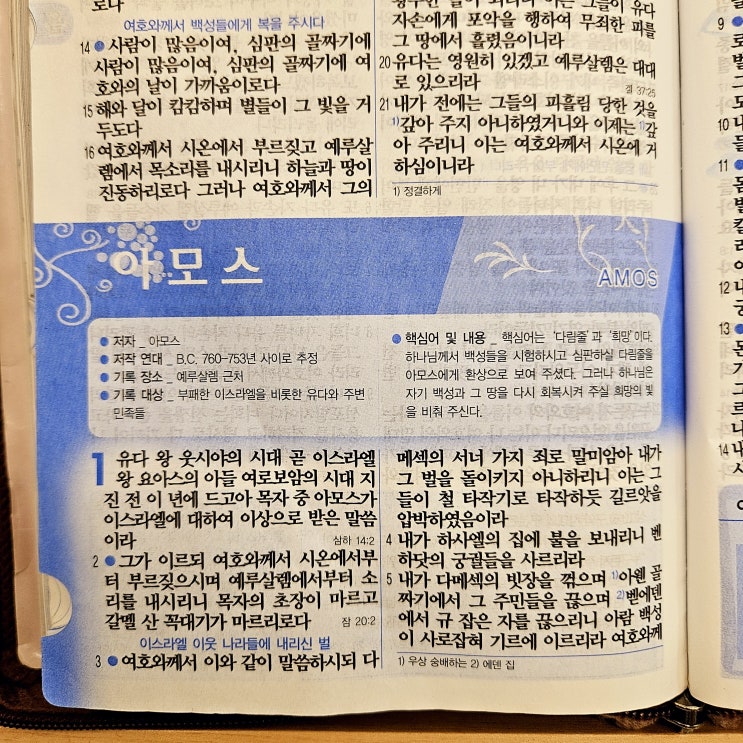 로다
여호와께서 백성들에게 복을 주시다
14 사람이 많음이여, 심판의 골짜기에
사람이 많음이여, 심판의 골짜기에 여
호와의 날이 가까움이로다
15 해와 달이 캄캄하며 별들이 그 빛을 거
두도다
16 여호와께서 시온에서 부르짖고 예루살
렘에서 목소리를 내시리니 하늘과 땅이
진동하리로다 그러나 여호와께서 그의
자손에게 포악을 행하여 무죄한 피를
그 땅에서 흘렸음이니라
20 유다는 영원히 있겠고 예루살렘은 대대
로 있으리라
겔 37:25
21 내가 전에는 그들의 피흘림 당한 것을
1)갚아 주지 아니하였거니와 이제는 1)갚
아 주리니 이는 여호와께서 시온에 거
하심이니라
1) 정결하게
아모스
AMOS
저자 _ 아모스
저작 연대 _ B.C. 760-753년 사이로 추정
기록 장소 _ 예루살렘 근처
기록 대상 _ 부패한 이스라엘을 비롯한 유다와 주변
민족들
핵심어 및 내용 _ 핵심어는 '다림줄'과 '희망'이다.
하나님께서 백성들을 시험하시고 심판하실 다림줄을
아모스에게 환상으로 보여 주셨다. 그러나 하나님은
자기 백성과 그 땅을 다시 회복시켜 주실 희망의 빛
을 비춰 주신다.
1 유다 왕 웃시야의 시대 곧 이스라엘
왕 요아스의 아들 여로보암의 시대 지
진 전 이 년에 드고아 목자 중 아모스가
이스라엘에 대하여 이상으로 받은 말씀
이라
삼하 14:2
2 그가 이르되 여호와께서 시온에서부
터 부르짖으시며 예루살렘에서부터 소
리를 내시리니 목자의 초장이 마르고
갈멜 산 꼭대기가 마르리로다
잠 20:2
이스라엘 이웃 나라들에 내리신 벌
3 여호와께서 이와 같이 말씀하시되 다
메섹의 서너 가지 죄로 말미암아 내가
그 벌을 돌이키지 아니하리니 이는 그
들이 철 타작기로 타작하듯 길르앗을
압박하였음이라
4 내가 하사엘의 집에 불을 보내리니 벤
하닷의 궁궐들을 사르리라
5 내가 다메섹의 빗장을 꺾으며 1)아웬 골
짜기에서 그 주민들을 끊으며 2)벧에덴
에서 규 잡은 자를 끊으리니 아람 백성
이 사로잡혀 기르에 이르리라 여호와께
1) 우상 숭배하는 2) 에덴 집
9
10
11
12
13
14